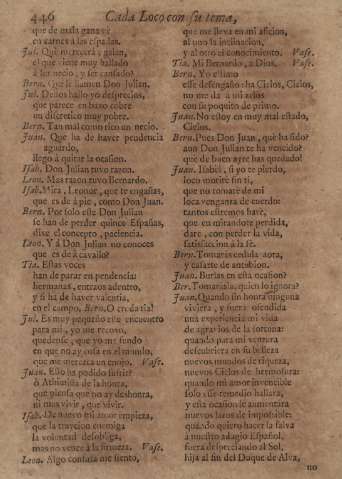 446 Cada Loco con su tema,
que de mala gana vè
en carnes à las espaldas.
Jul. Què merecerà, galan,
el que viene muy hallado
à ser necio, y ser cansado?
Bern. Que se llame Don Julian.
Jul. Destos hallo yo desprecios,
que parece en bazo cobre
un discretico muy pobre.
Bern. Tan mal como rico un necio.
Juan. Que ha de haver pendencia
aguardo,
llegò à quitar la ocasion.
Isab. Don Julian tuvo razon.
Leon. Mas razon tuvo Bernardo.
Isab. Mira, Leonor, que te engañas,
que es de à pie, como Don Juan.
Bern. Por solo este Don Julian
se han de perder quince Españas,
dixe el concepto, paciencia.
Leon. Y à Don Julian no conoces
que es de à cavallo?
Tia. Estas voces
han de parar en pendencia:
hermanas, entraos adentro,
y si ha de haver valentia,
en el campo. Bern. O credatia!
Jul. Es muy pequeño este encuentro
para mi, yo me recono,
quedense, que yo me fundo
en que no ay cosa en el mundo,
que me merezca un enojo. Vase.
Juan. Esto ha podido sufrir?
ò Atheista de la honra,
que piensa que no ay deshonra,
ni mas vivir, que vivir.
Isab. De nuevo mi amor empieza,
que la traycion enemiga
la voluntad desobliga,
mas no vence à la firmeza. Vase.
Leon. Algo consuta me siento,
que me lleva en mi aficion,
al uno la inclinacion,
y al otro el conocimiento. Vase.
Tia. Mi Bernardo, à Dios. Vase.
Bern. Yo estimo
este desengaño: ha Cielos, Cielos,
no me dà à mi zelos
con su poquito de primo.
Juan. No estoy en muy mal estado,
Cielos.
Bern. Pues Don Juan, què ha sido?
aun Don Julian te ha vencido?
què de buen ayre has quedado!
Juan. Isabel, si yo te pierdo,
loco morirè sin ti,
que no tomarè de mi
loca venganza de cuerdo:
tantos estremos harè,
que es mirandote perdida,
darè, con perder la vida,
satisfaccion à la fè.
Bern. Tomaràs cedula aora,
y casete de antubion.
Juan. Burlas en esta ocasion?
Ber. Tomariala, quien lo ignora?
Juan. Quando sin honra ninguna
viviera, y fuera ofendida
mi experiencia mi vida
de agravios de la fortuna:
quando para mi ventura
descubriera en su belleza
nuevos mundos de riqueza,
nuevos Cielos de hermosura:
quando mi amor invencible
solo este remedio hallara,
y esta ocasion le aumentara
nuevos lazos de imposible:
quãdo quiero hacer la salva
à nuestro adagio Español,
fuera despreciando al Sol,
hija al fin del Duque de Alva,
no